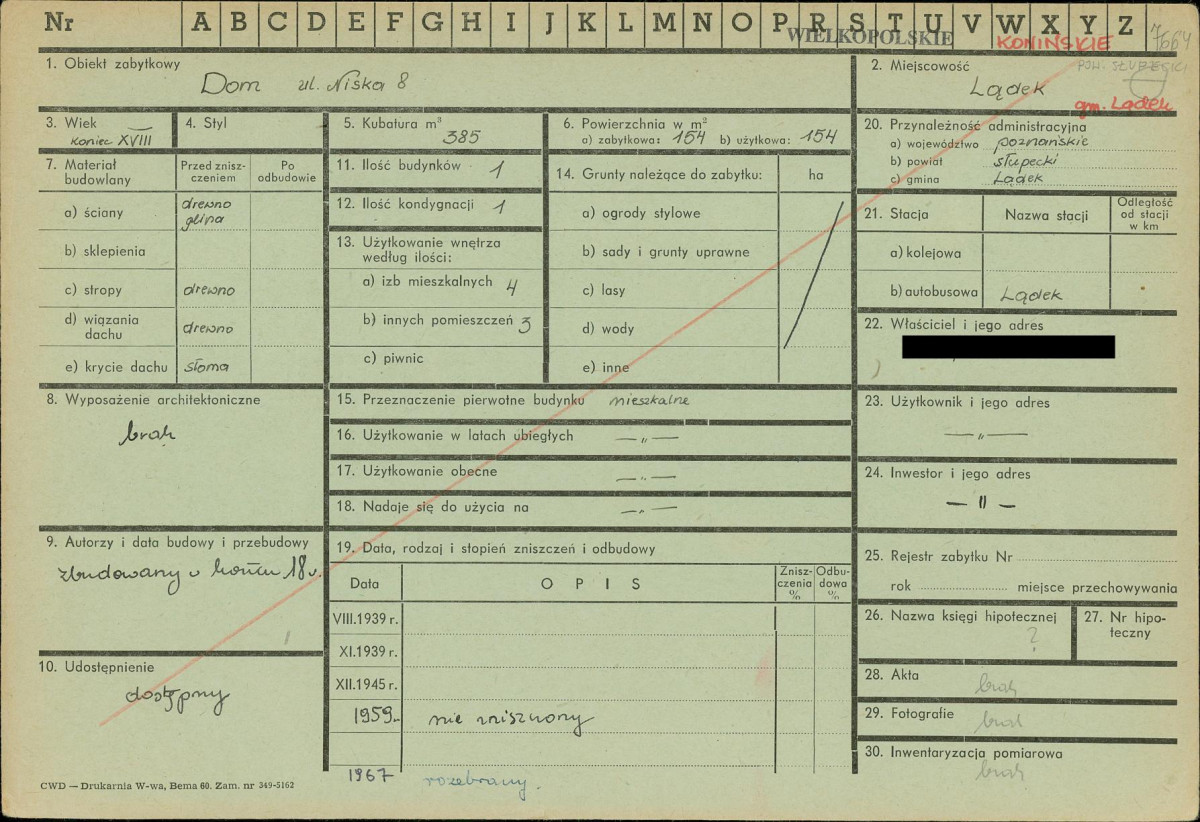 Nr A B C D E F G H I J K L M N O P R S T U V W X Y Z
WIELKOPOLSKIE KONIŃSKIE 7664
1. Obiekt zabytkowy
Dom ul. Niska 8
2. Miejscowość
Lądek
gm. Lądek
3. Wiek
koniec XVIII
4. Styl
5. Kubatura m³
385
6. Powierzchnia w m²
a) zabytkowa: 154 b) użytkowa: 154
20. Przynależność administracyjna
a) województwo poznańskie
b) powiat słupecki
c) gmina Lądek
7. Materiał budowlany
Przed zniszczeniem
Po odbudowie
a) ściany drewno glina
b) sklepienia
c) stropy drewno
d) wiązania dachu drewno
e) krycie dachu słoma
11. Ilość budynków 1
12. Ilość kondygnacji 1
13. Użytkowanie wnętrza według ilości:
a) izb mieszkalnych 4
b) innych pomieszczeń 3
c) piwnic
14. Grunty należące do zabytku: ha
a) ogrody stylowe
b) sady i grunty uprawne
c) lasy
d) wody
e) inne
21. Stacja Nazwa stacji Odległość od stacji w km
a) kolejowa
b) autobusowa Lądek
22. Właściciel i jego adres
8. Wyposażenie architektoniczne
brak
15. Przeznaczenie pierwotne budynku mieszkalne
16. Użytkowanie w latach ubiegłych —"—
17. Użytkowanie obecne —"—
18. Nadaje się do użycia na —"—
23. Użytkownik i jego adres
—"—
24. Inwestor i jego adres
—"—
9. Autorzy i data budowy i przebudowy
zbudowany w końcu 18 w.
10. Udostępnienie
dostępny
19. Data, rodzaj i stopień zniszczeń i odbudowy
Data OPIS Zniszczenia % Odbudowa %
VIII.1939 r.
XI.1939 r.
XII.1945 r.
1959 r. nie zniszczony
1967 rozebrany.
25. Rejestr zabytku Nr
rok miejsce przechowywania
26. Nazwa księgi hipotecznej
?
27. Nr hipoteczny
28. Akta
brak
29. Fotografie
brak
30. Inwentaryzacja pomiarowa
brak
CWD — Drukarnia W-wa, Bema 60. Zam. nr 349-5162